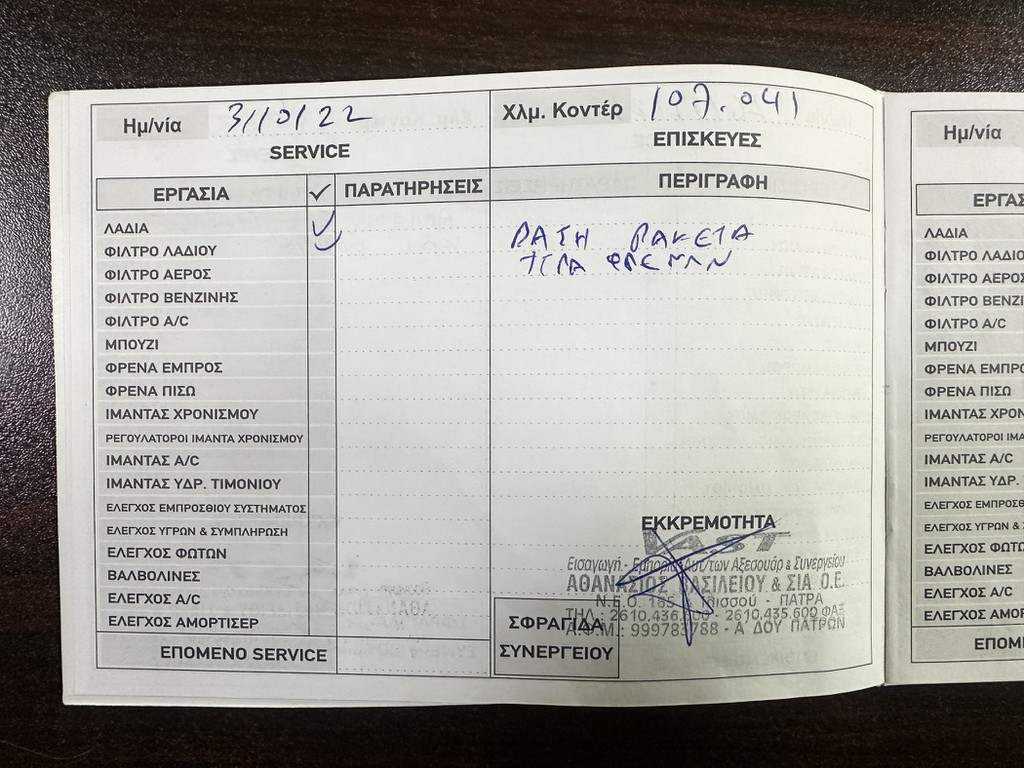 Ημ/νία 3/10/22 Χλμ. Κοντέρ 107.041
SERVICE ΕΠΙΣΚΕΥΕΣ
ΕΡΓΑΣΙΑ ✓ ΠΑΡΑΤΗΡΗΣΕΙΣ ΠΕΡΙΓΡΑΦΗ
ΛΑΔΙΑ ✓
ΦΙΛΤΡΟ ΛΑΔΙΟΥ ✓
ΦΙΛΤΡΟ ΑΕΡΟΣ
ΦΙΛΤΡΟ ΒΕΝΖΙΝΗΣ
ΦΙΛΤΡΟ A/C
ΜΠΟΥΖΙ
ΦΡΕΝΑ ΕΜΠΡΟΣ
ΦΡΕΝΑ ΠΙΣΩ
ΙΜΑΝΤΑΣ ΧΡΟΝΙΣΜΟΥ
ΡΕΓΟΥΛΑΤΟΡΟΙ ΙΜΑΝΤΑ ΧΡΟΝΙΣΜΟΥ
ΙΜΑΝΤΑΣ A/C
ΙΜΑΝΤΑΣ ΥΔΡ. ΤΙΜΟΝΙΟΥ
ΕΛΕΓΧΟΣ ΕΜΠΡΟΣΘΙΟΥ ΣΥΣΤΗΜΑΤΟΣ
ΕΛΕΓΧΟΣ ΥΓΡΩΝ & ΣΥΜΠΛΗΡΩΣΗ
ΕΛΕΓΧΟΣ ΦΩΤΩΝ
ΒΑΛΒΟΛΙΝΕΣ
ΕΛΕΓΧΟΣ A/C
ΕΛΕΓΧΟΣ ΑΜΟΡΤΙΣΕΡ
ΕΠΟΜΕΝΟ SERVICE
ΕΚΚΡΕΜΟΤΗΤΑ
Εισαγωγή - Εμπορία Αυτ/των Αξεσουάρ & Συνεργείου
ΑΘΑΝΑΣΙΟΣ ΒΑΣΙΛΕΙΟΥ & ΣΙΑ Ο.Ε.
Ν.Ε.Ο. ΠΑΤΡΑ
ΤΗΛ.: - 2610.435.600 ΦΑΞ
Α.Φ.Μ.: 999783788 - Α΄ ΔΟΥ ΠΑΤΡΩΝ
ΣΦΡΑΓΙΔΑ
ΣΥΝΕΡΓΕΙΟΥ
Ημ/νία
ΕΡΓΑΣ
ΛΑΔΙΑ
ΦΙΛΤΡΟ ΛΑΔΙΟ
ΦΙΛΤΡΟ ΑΕΡΟΣ
ΦΙΛΤΡΟ ΒΕΝΖΙ
ΦΙΛΤΡΟ A/C
ΜΠΟΥΖΙ
ΦΡΕΝΑ ΕΜΠΡΟ
ΦΡΕΝΑ ΠΙΣΩ
ΙΜΑΝΤΑΣ ΧΡΟΝ
ΡΕΓΟΥΛΑΤΟΡΟΙ ΙΜΑ
ΙΜΑΝΤΑΣ A/C
ΙΜΑΝΤΑΣ ΥΔΡ.
ΕΛΕΓΧΟΣ ΕΜΠΡΟΣΘ
ΕΛΕΓΧΟΣ ΥΓΡΩΝ &
ΕΛΕΓΧΟΣ ΦΩΤΩ
ΒΑΛΒΟΛΙΝΕΣ
ΕΛΕΓΧΟΣ A/C
ΕΛΕΓΧΟΣ ΑΜΟΡ
ΕΠΟΜΕ